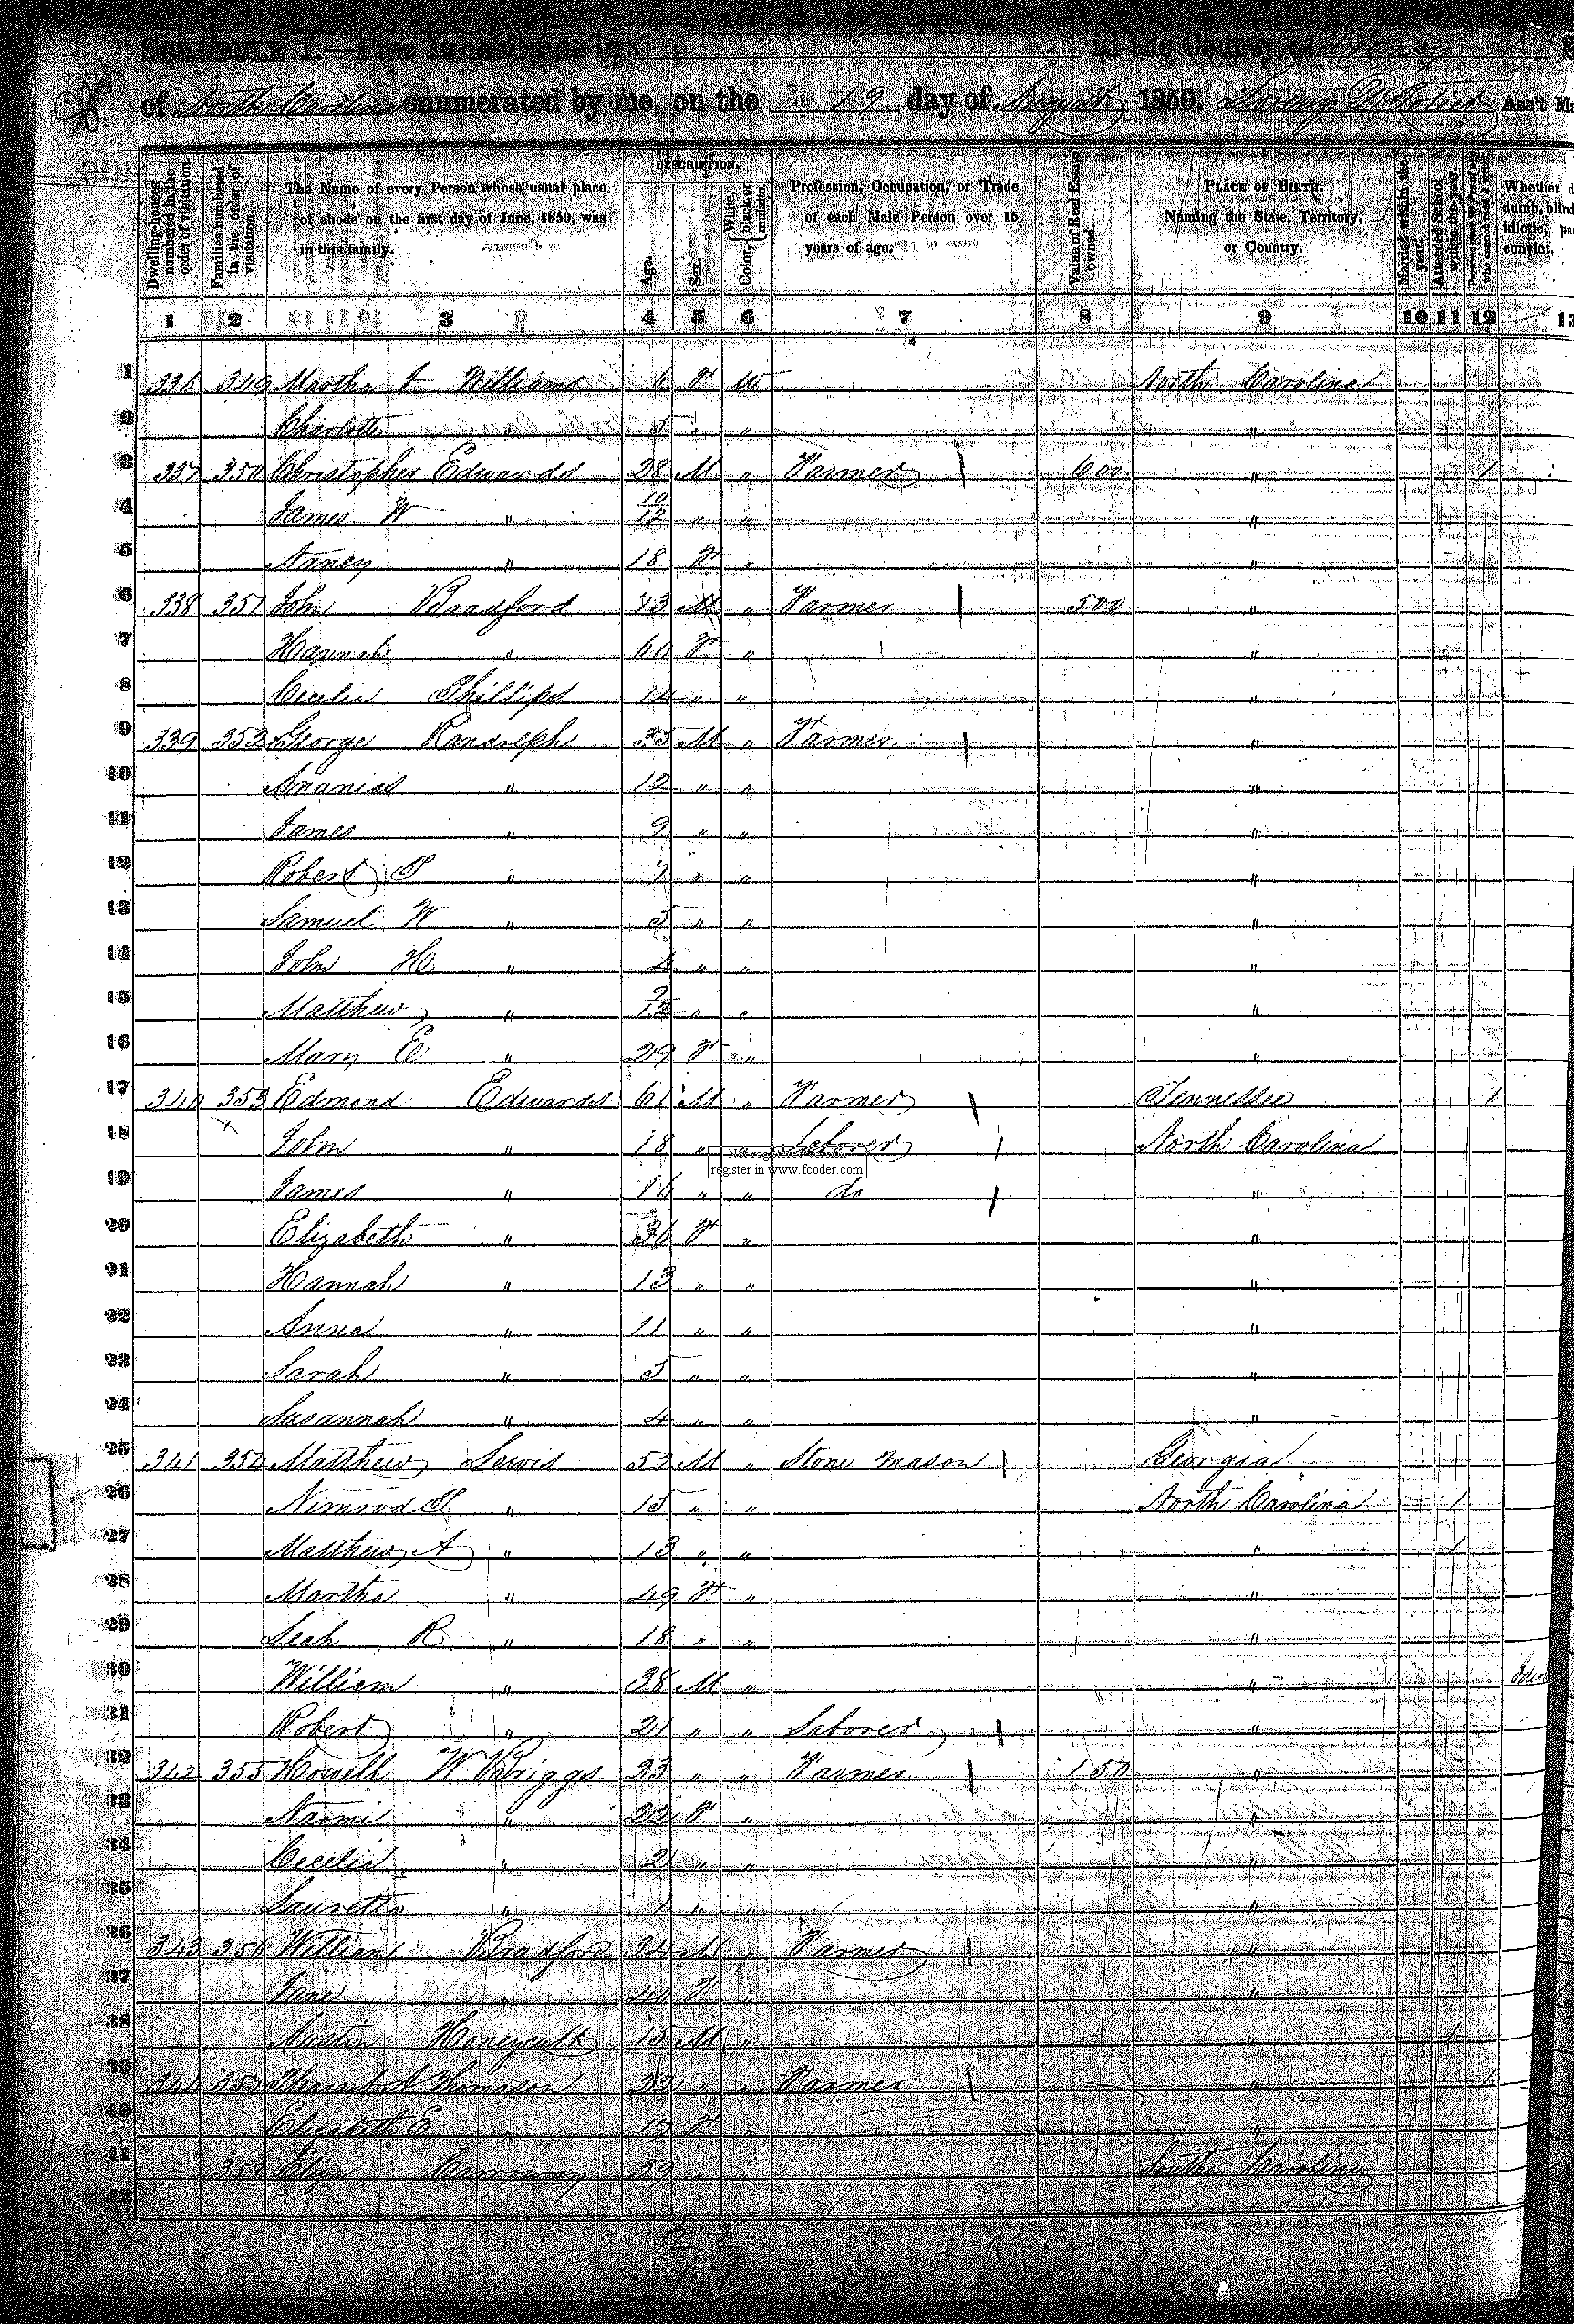 of North Carolina enumerated by me, on the 19 day of August 1850. Ass't
Dwelling-houses numbered in the order of visitation.
Families numbered in the order of visitation.
The Name of every Person whose usual place of abode on the first day of June, 1850, was in this family.
DESCRIPTION.
Age.
Sex.
Color, White, black, or mulatto.
Profession, Occupation, or Trade of each Male Person over 15 years of age.
Value of Real Estate owned.
PLACE OF BIRTH. Naming the State, Territory, or Country.
Married within the year.
Attended School within the year.
Whether dumb, blind idiotic, convict.
1 2 3 4 5 6 7 8 9 10 11 12 13
1 349 Martha Williams 6 F W North Carolina
2 Charlotte " 5 " " "
3 337 350 Christopher Edwards 28 M " Farmer 600 " 1
4 James W " 10/12 " " "
5 " 18 F " "
6 338 351 John Bradford 73 M " Farmer 500 "
7 Hannah " 60 F " "
8 Cecelia Phillips 14 " " "
9 339 352 George Randolph 35 M " Farmer "
10 Ananias " 12 " " "
11 James " 9 " " "
12 Robert P " 7 " " "
13 Samuel W " 5 " " "
14 John H " 4 " " "
15 Matthew " 9/12 " " "
16 Mary E " 29 F " "
17 340 353 Edmond Edwards 61 M " Farmer Tennessee 1
18 John " 18 " " Laborer North Carolina
register in www.fcoder.com
19 James " 16 " " do "
20 Elizabeth " 36 F " "
21 Hannah " 13 " " "
22 Anna " 11 " " "
23 Sarah " 5 " " "
24 Susannah " 4 " " "
25 341 354 Matthew Lewis 52 M " Stone mason Georgia
26 Nimrod S " 15 " " North Carolina 1
27 Matthew A " 13 " " " 1
28 Martha " 49 F " "
29 Leah R " 18 " " "
30 William " 38 M " "
31 Robert " 21 " " Laborer "
32 342 355 Howell W. Briggs 23 " " Farmer 150 "
33 Naomi " 22 F " "
34 Cecelia " 2 " " "
35 Lauretta " 1 " " "
36 343 356 William Bradford 24 M " Farmer "
37 Jane F " "
38 Austin Honeycutt 15 M " " 1
39 Thomason Farmer "
40 Elizabeth E 17 F "
41 South Carolina